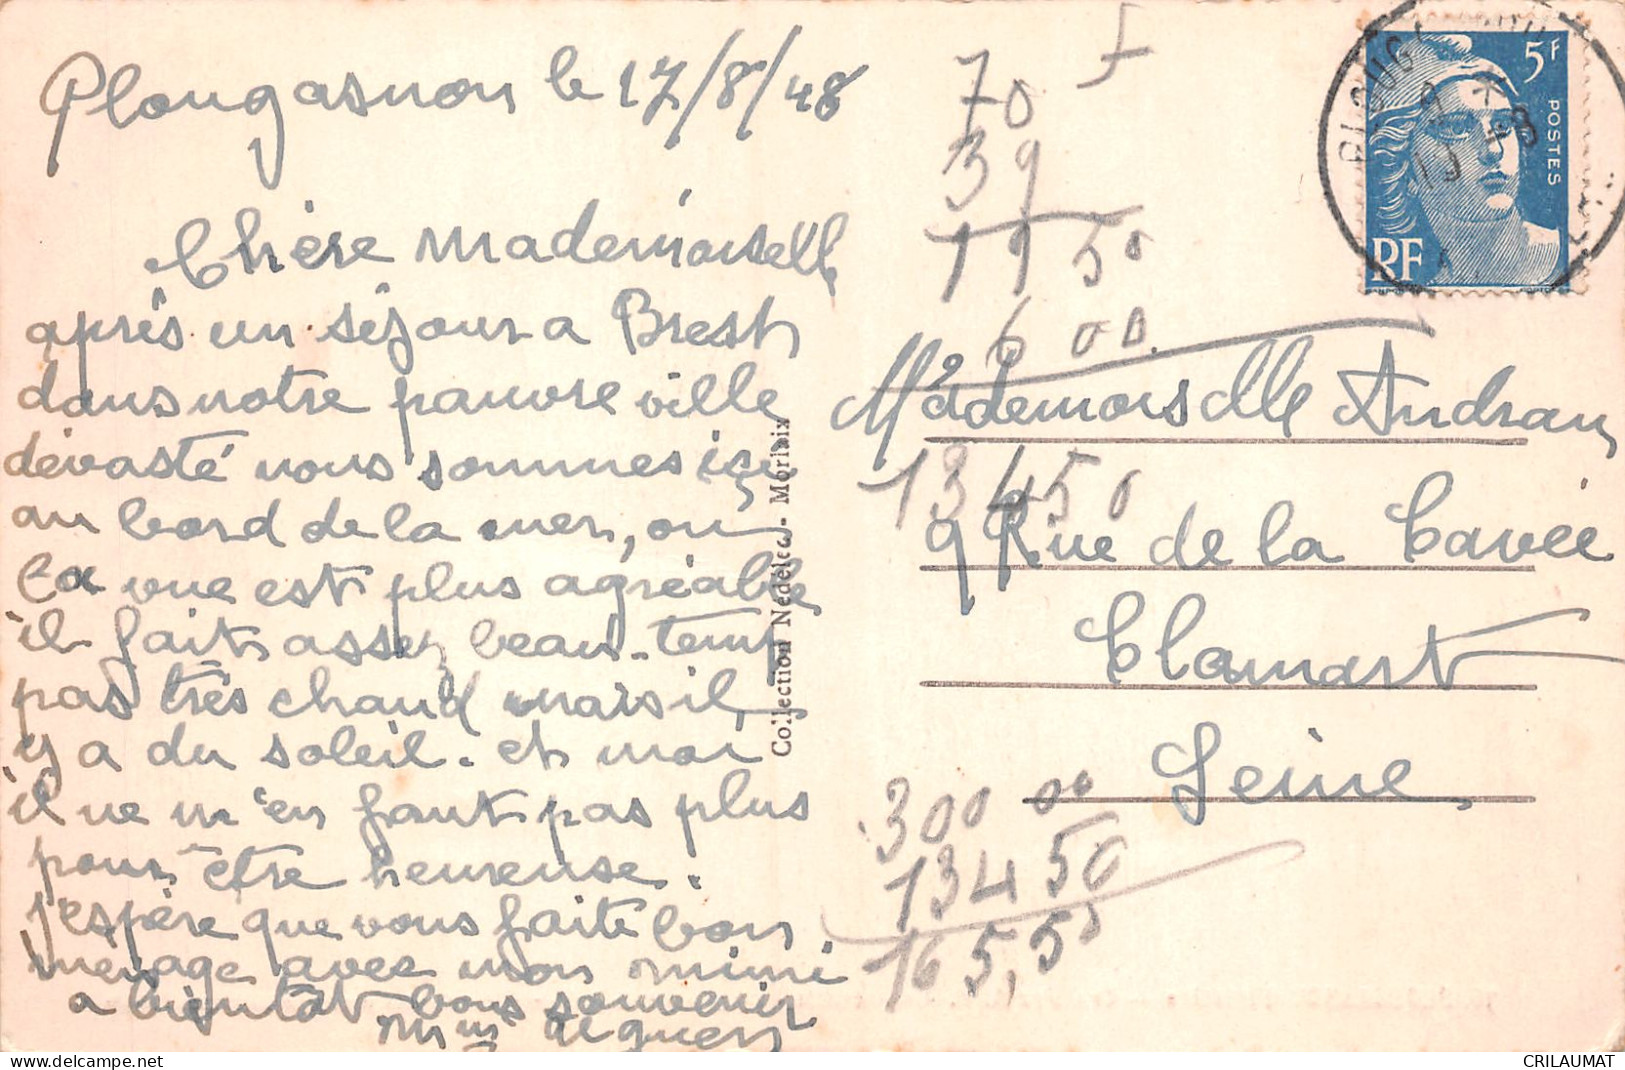 Plougasnou le 17/8/48
Chère Mademoiselle
après un séjour a Brest
dans notre pauvre ville
dévasté nous sommes ici
au bord de la mer, où
la vue est plus agréable
il fait assez beau temps
pas très chaud mais il
y a du soleil. et moi
il ne m'en faut pas plus
pour être heureuse.
j'espère que vous faite bon
menage avec mon mimi
a bientôt bons souvenir
Mme
Collection Nédélec - Morlaix
70 F
39
19 50
6 00
134 50
300 00
134 50
165,50
5F
POSTES
RF
Mademoiselle Andran
9 Rue de la Cavée
Clamart
Seine
CRILAUMAT